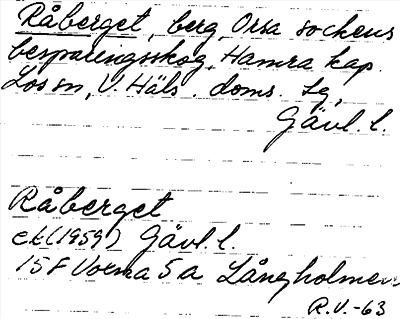 Råberget, berg, Orsa sockens
besparingsskog, Hamra kap.
Los sn, V. Häls. doms. lg,
Gävl. l.
Råberget
ek (1959) Gävl. l.
15F Voxna 5a Långholmen
R.V.-63